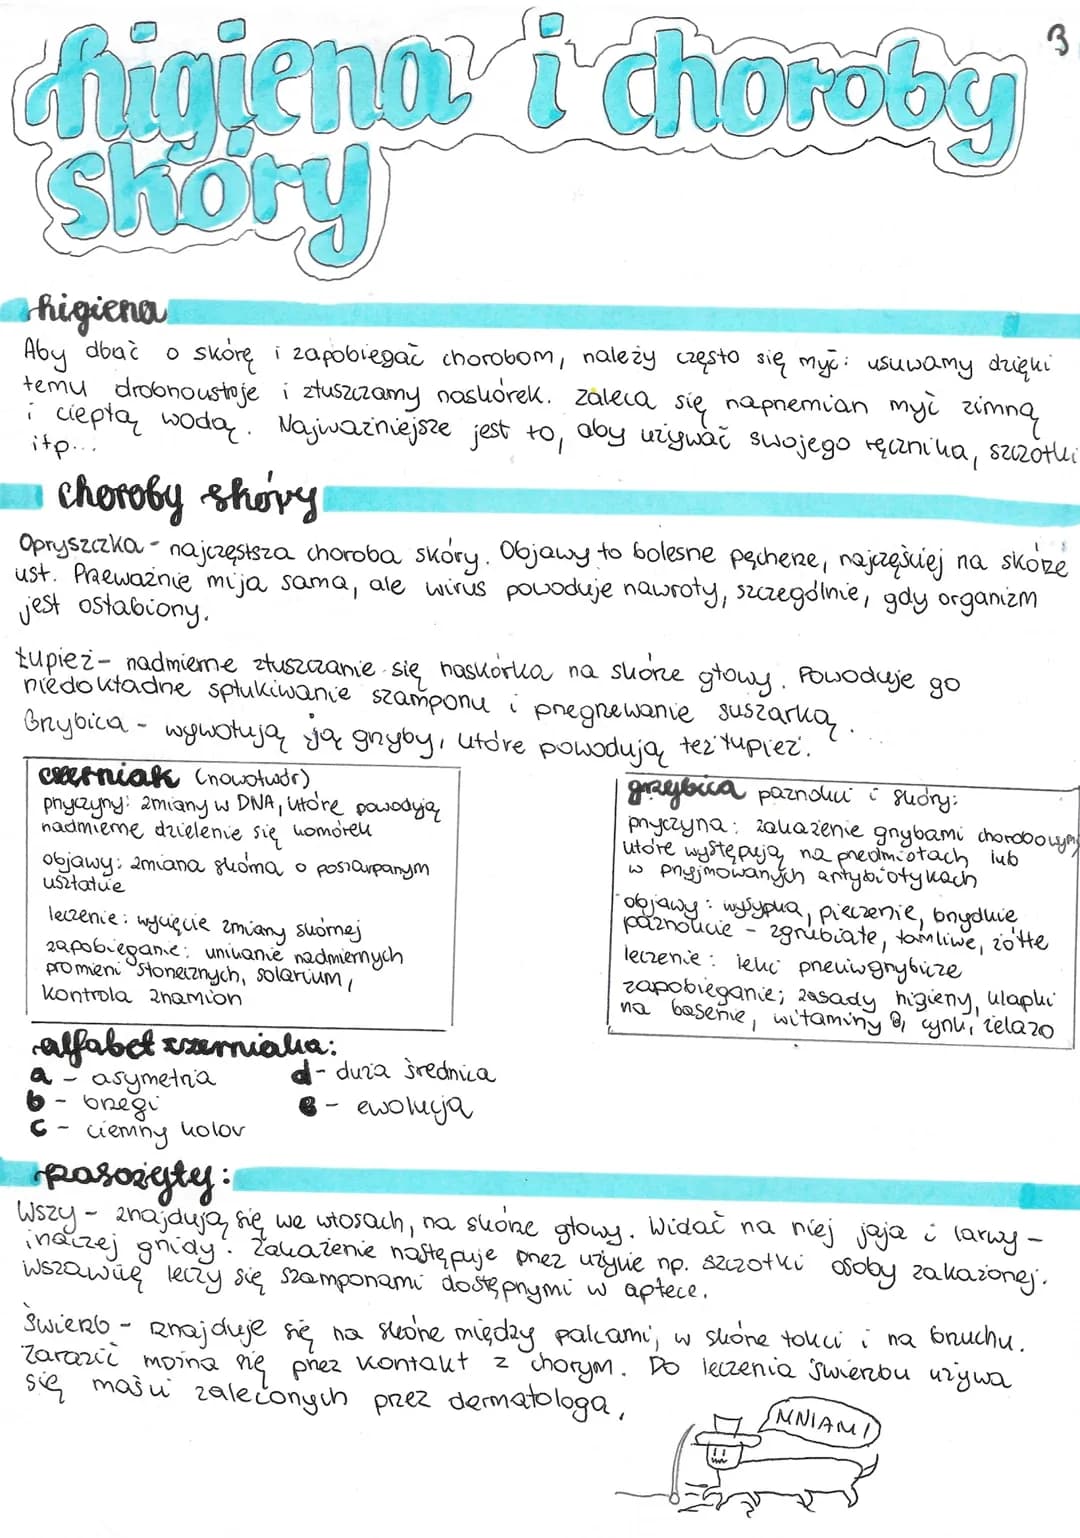 3
higiena i choroby
skóry
higiena
Aby dbać o skórę i zapobiegać chorobom, należy często się myć: usuwamy dzięki
temu drobnoustroje i złuszczamy naskórek. Zaleca się naprzemian myć zimną
i ciepłą wodą. Najważniejsze jest to, aby używać swojego ręcznika, szczotki
itp...
choroby skóry
Opryszczka - najczęstsza choroba skóry. Objawy to bolesne pęcherze, najczęściej na skórze
ust. Przeważnie mija sama, ale wirus powoduje nawroty, szczególnie, gdy organizm
jest osłabiony.
Łupież - nadmierne złuszczanie się naskórka na skórze głowy. Powoduje go
niedokładne spłukiwanie szamponu i przegrzewanie suszarką.
Grzybica - wywołują ją grzyby, które powodują też łupież.
czerniak (nowotwór)
przyczyny: zmiany w DNA, które powodują
nadmierne dzielenie się komórek
objawy: zmiana skórna o poszarpanym
kształcie
leczenie: wycięcie zmiany skórnej
zapobieganie: unikanie nadmiernych
promieni słonecznych, solarium,
kontrola znamion
grzybica paznokci i skóry:
przyczyna: zakażenie grzybami chorobowymi
które występują na przedmiotach lub
w przyjmowanych antybiotykach
objawy: wysypka, pieczenie, brzydkie
paznokcie - zgrubiałe, łamliwe, żółte
leczenie: leki przeciwgrzybicze
zapobieganie; zasady higieny, klapki
na basenie, witaminy B, cynk, żelazo
alfabet czerniaka:
a - asymetria
b - brzegi
c - ciemny kolor
d - duża średnica
e - ewolucja
pasożyty:
Wszy - znajdują się we włosach, na skórze głowy. Widać na niej jaja i larwy -
inaczej gnidy. Zakażenie następuje przez użycie np. szczotki osoby zakażonej.
Wszawicę leczy się szamponami dostępnymi w aptece.
Świerzb - znajduje się na skórze między palcami, w skórze łokci i na brzuchu.
Zarazić można się przez kontakt z chorym. Do leczenia świerzbu używa
się maści zaleconych przez dermatologa.
MNIAM!